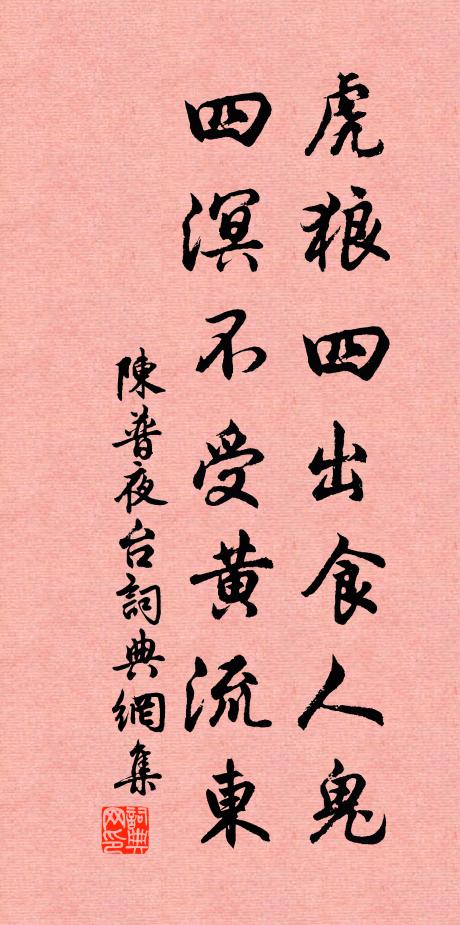 虎狼四出食人鬼
四溟不受黄流東
陳普夜台詞典網集
詞典网印